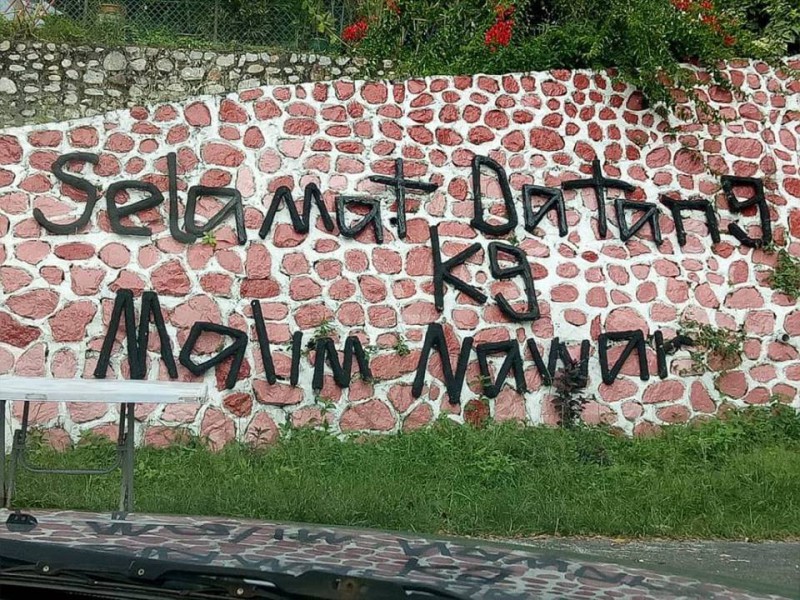 Selamat Datang
kg
Malim Nawar